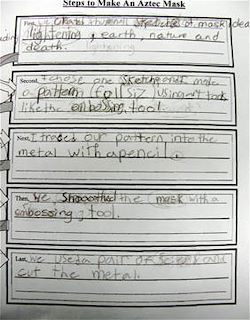 Steps to Make An Aztec Mask
First, we thumbnail sketches of mask idea
lightening, earth, nature and
death. lightening
Second, I chose one sketch and made
a pattern (full siz using art tools
like the embossing tool.
Next, I traced our pattern into the
metal with a pencil.
Then, We smoothed the mask with a
embossing tool.
Last, we used a pair of and
cut the metal.